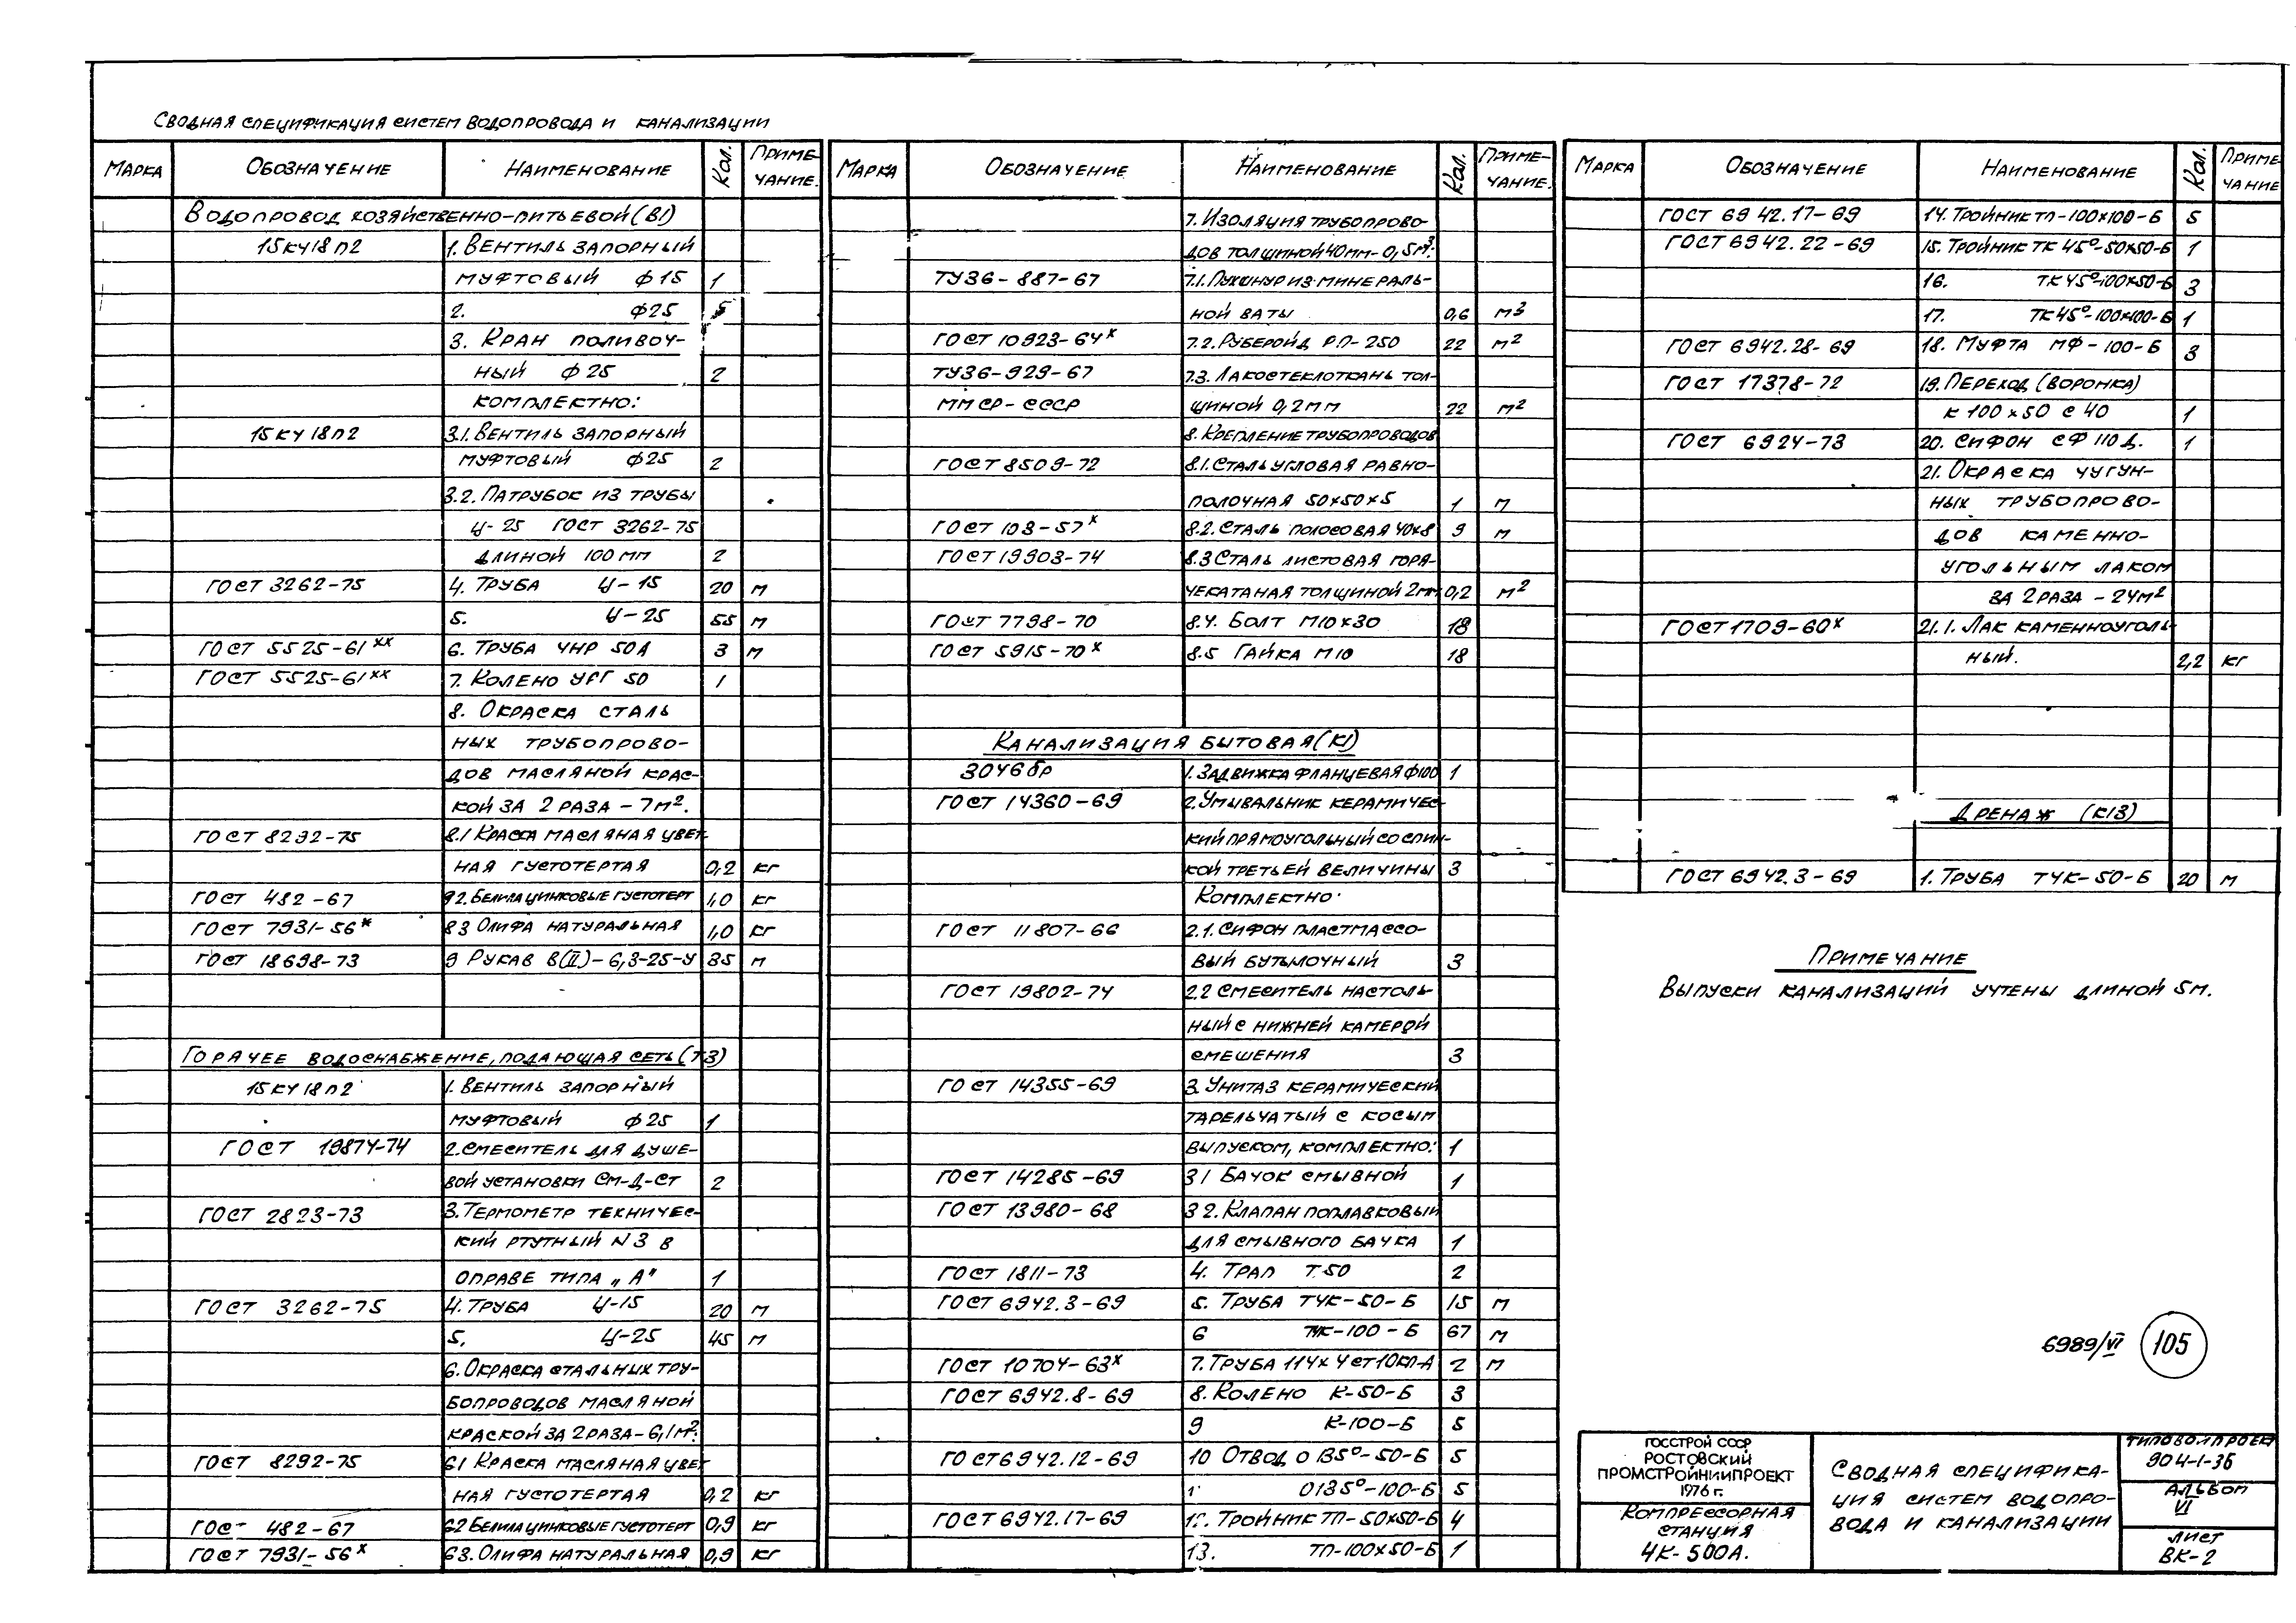 Сводная спецификация систем водопровода и канализации
Марка Обозначение Наименование Кол. Приме-
чание.
Водопровод хозяйственно-питьевой (В1)
15кч18п2 1. Вентиль запорный
муфтовый ф15 1
2. ф25 5
3. Кран поливоч-
ный ф25 2
комплектно:
15кч18п2 3.1. Вентиль запорный
муфтовый ф25 2
3.2. Патрубок из трубы
Ц-25 ГОСТ 3262-75
длиной 100мм 2
ГОСТ 3262-75 4. Труба Ц-15 20 м
5. Ц-25 55 м
ГОСТ 5525-61хх 6. Труба ЧНР 50А 3 м
ГОСТ 5525-61хх 7. Колено УРГ 50 1
8. Окраска сталь
ных трубопрово-
дов масляной крас-
кой за 2 раза - 7м².
ГОСТ 8292-75 8.1 Краска масляная цвет-
ная густотертая 0,2 кг
ГОСТ 482-67 92. Белила цинковые густотерт 1,0 кг
ГОСТ 7931-56* 83 Олифа натуральная 1,0 кг
ГОСТ 18698-73 9 Рукав В(II)-6,3-25-У 35 м
Горячее водоснабжение, подающая сеть (Т3)
15кч18п2 1. Вентиль запорный
муфтовый ф25 1
ГОСТ 19874-74 2. Смеситель для душе-
вой установки См-Д-Ст 2
ГОСТ 2823-73 3. Термометр техничес-
кий ртутный N3 в
оправе типа „А" 1
ГОСТ 3262-75 4. Труба Ц-15 20 м
5. Ц-25 45 м
6. Окраска стальных тру-
бопроводов масляной
краской за 2 раза-6,1м².
ГОСТ 8292-75 61 Краска масляная цвет
ная густотертая 0,2 кг
ГОСТ 482-67 62 Белила цинковые густотерт 0,9 кг
ГОСТ 7931-56х 63. Олифа натуральная 0,9 кг
Марка Обозначение Наименование Кол. Приме-
чание.
7. Изоляция трубопрово-
дов толщиной 40мм-0,5м³.
ТУ36-887-67 7.1. Пухшнур из минераль-
ной ваты 0,6 м3
ГОСТ 10923-64х 7.2. Рубероид РП-250 22 м2
ТУ36-929-67 7.3. Лакостеклоткань тол-
ММСР-СССР щиной 0,2мм 22 м2
8. Крепление трубопроводов
ГОСТ 8509-72 8.1. Сталь угловая равно-
полочная 50х50х5 1 м
ГОСТ 103-57х 8.2. Сталь полосовая 40х8 9 м
ГОСТ 19903-74 8.3 Сталь листовая горя-
чекатаная толщиной 2мм 0,2 м2
ГОСТ 7798-70 8.4. Болт М10х30 18
ГОСТ 5915-70х 8.5 Гайка М10 18
Канализация бытовая (К1)
30ч6бр 1. Задвижка фланцевая ф100 1
ГОСТ 14360-69 2. Умывальник керамичес-
кий прямоугольный со спин-
кой третьей величины 3
Комплектно:
ГОСТ 11807-66 2.1. Сифон пластмассо-
вый бутылочный 3
ГОСТ 19802-74 2.2 Смеситель настоль-
ный с нижней камерой
смешения 3
ГОСТ 14355-69 3. Унитаз керамический
тарельчатый с косым
выпуском, комплектно: 1
ГОСТ 14285-69 31 Бачок смывной 1
ГОСТ 13980-68 32. Клапан поплавковый
для смывного бачка 1
ГОСТ 1811-73 4. Трап Т50 2
ГОСТ 6942.3-69 5. Труба ТЧК-50-Б 15 м
6 ТЧК-100-Б 67 м
ГОСТ 10704-63х 7. Труба 114х4 ст10кп-А 2 м
ГОСТ 6942.8-69 8. Колено К-50-Б 3
9 К-100-Б 5
ГОСТ 6942.12-69 10 Отвод О135°-50-Б 5
О135°-100-Б 5
ГОСТ 6942.17-69 12. Тройник ТП-50х50-Б 4
13. ТП-100х50-Б 1
Марка Обозначение Наименование Кол. Приме-
чание
ГОСТ 6942.17-69 14. Тройник ТП-100х100-Б 5
ГОСТ 6942.22-69 15. Тройник ТК 45°-50х50-Б 1
16. ТК 45°-100х50-Б 3
17. ТК 45°-100х100-Б 1
ГОСТ 6942.28-69 18. Муфта МФ-100-Б 3
ГОСТ 17378-72 19. Переход (воронка)
К 100х50 с 40 1
ГОСТ 6924-73 20. Сифон СФ 110Д. 1
21. Окраска чугун-
ных трубопрово-
дов каменно-
угольным лаком
за 2 раза - 24м2
ГОСТ 1709-60х 21.1. Лак каменноуголь
ный. 2,2 кг
Дренаж (К13)
ГОСТ 6942.3-69 1. Труба ТЧК-50-Б 20 м
Примечание
Выпуски канализаций учтены длиной 5м.
6989/VI 105
ГОССТРОЙ СССР
РОСТОВСКИЙ
ПРОМСТРОЙНИИПРОЕКТ
1976 г.
Компрессорная
станция
4К-500А.
Сводная специфика-
ция систем водопро-
вода и канализации
Типовой проект
904-1-36
Альбом
VI
Лист
ВК-2